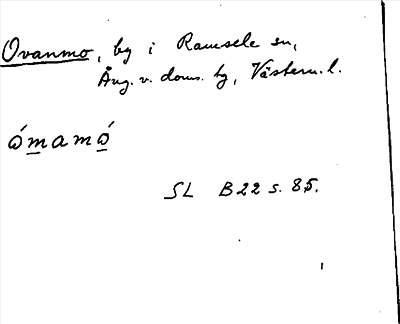 Ovanmo, by i Ramsele sn,
Ång. v. doms. tg, Västern. l.
ómamó
SL B22 s. 85.